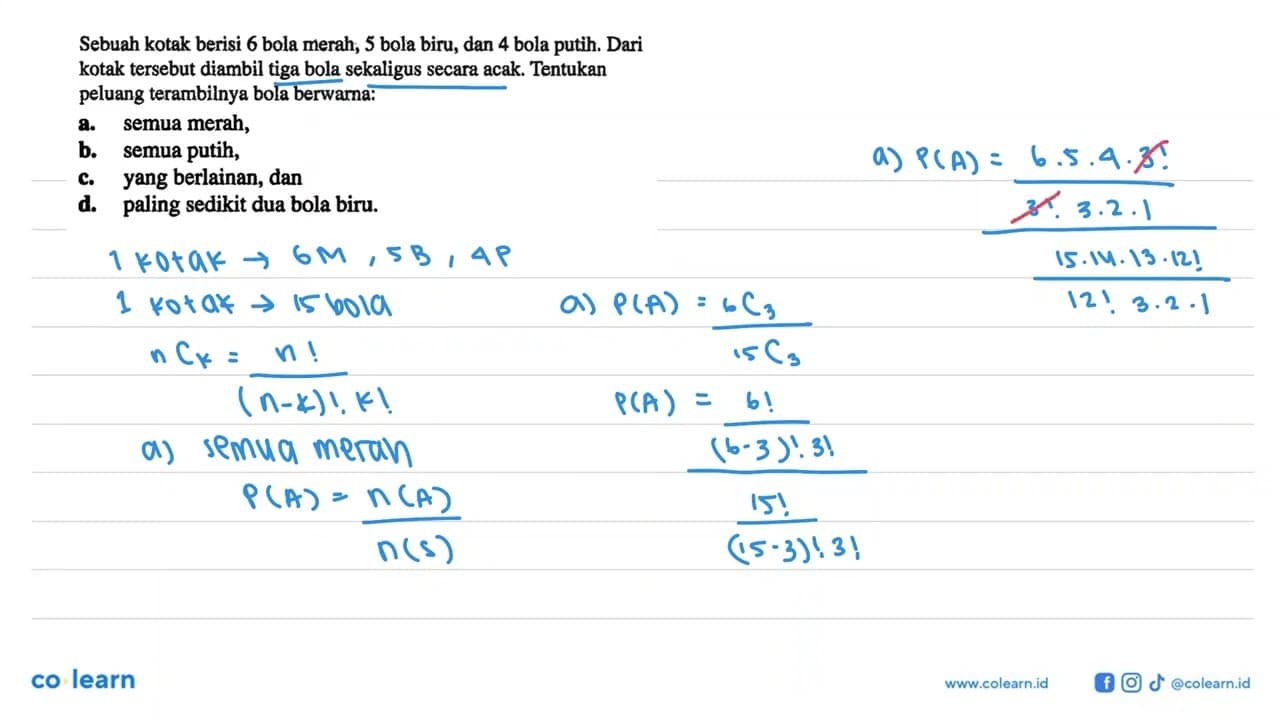 Sebuah kotak berisi 6 bola merah, 5 bola biru, dan 4 bola putih. Dari
kotak tersebut diambil tiga bola sekaligus secara acak. Tentukan
peluang terambilnya bola berwarna:
a. semua merah,
b. semua putih,
c. yang berlainan, dan
d. paling sedikit dua bola biru.
1 kotak → 6M, 5B, 4P
1 kotak → 15 bola
nCk = n!
(n-k)!. k!
a) semua merah
P(A) = n(A)
n(s)
a) P(A) = 6C3
15C3
P(A) = 6!
(6-3)! 3!
15!
(15-3)! 3!
a) P(A) = 6.5.4.3!
3!. 3.2.1
15.14.13.12!
12! 3.2.1
co learn
www.colearn.id
@colearn.id